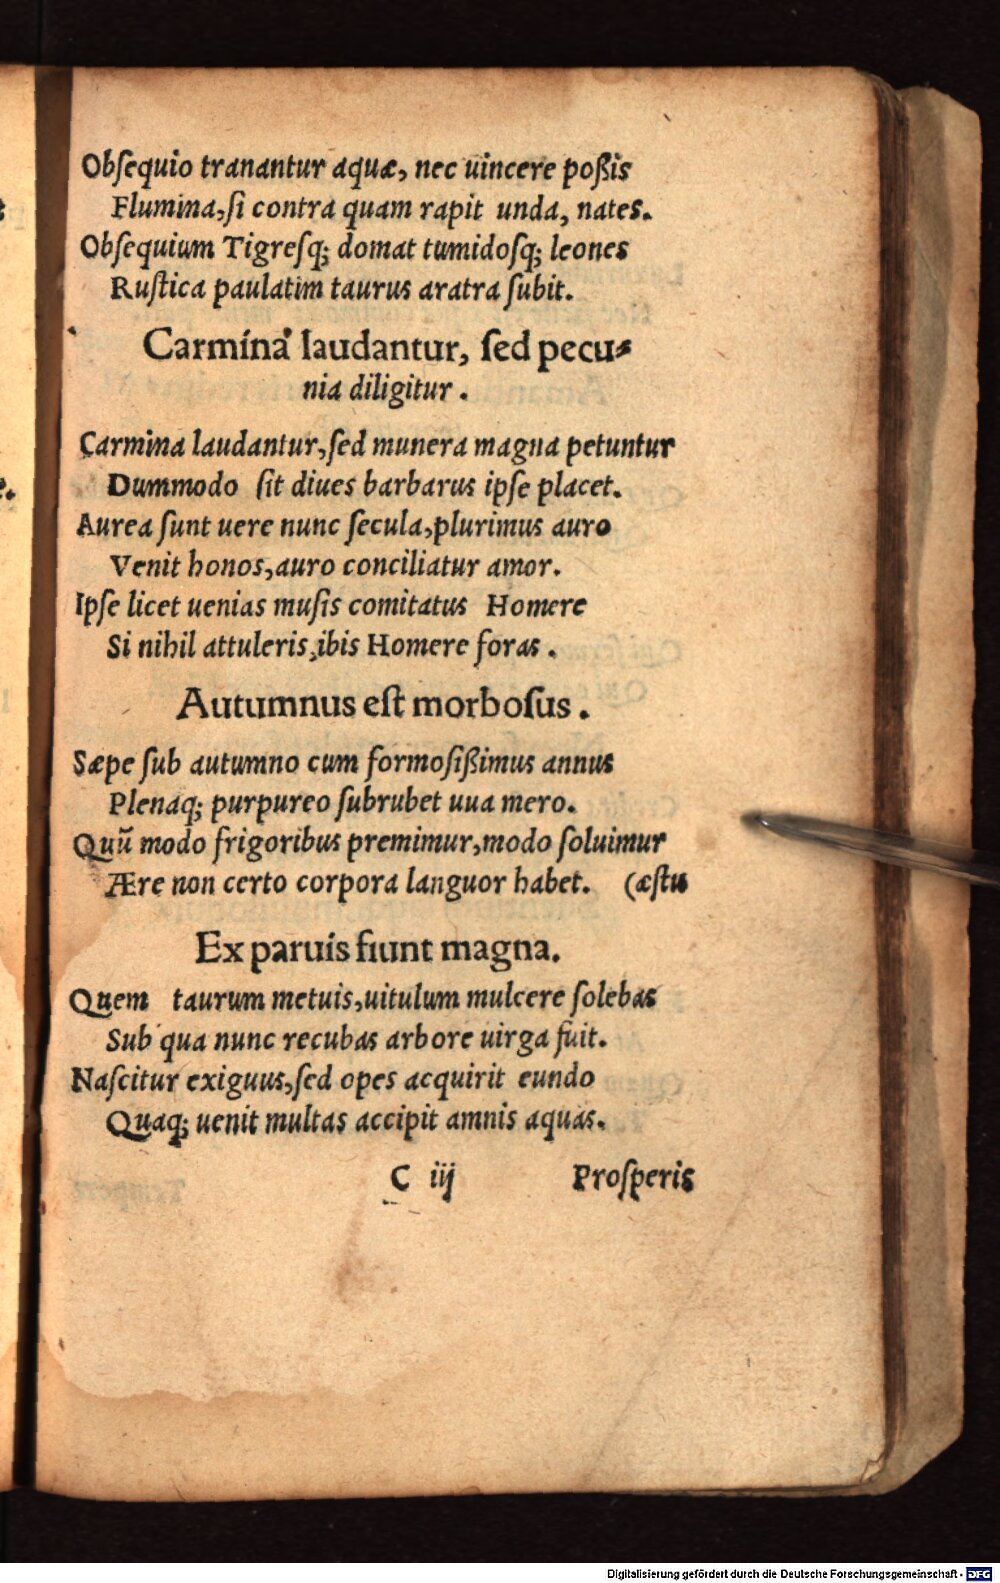 Obſequio tranantur aquæ, nec uincere poßis
Flumina, ſi contra quam rapit unda, nates.
Obſequium Tigreſq; domat tumidoſq; leones
Ruſtica paulatim taurus aratra ſubit.
Carmina laudantur, ſed pecu-
nia diligitur.
Carmina laudantur, ſed munera magna petuntur
Dummodo ſit diues barbarus ipſe placet.
Aurea ſunt uere nunc ſecula, plurimus auro
Venit honos, auro conciliatur amor.
Ipſe licet uenias muſis comitatus Homere
Si nihil attuleris, ibis Homere foras.
Autumnus eſt morboſus.
Sæpe ſub autumno cum formoſißimus annus
Plenaq; purpureo ſubrubet uua mero.
Quū modo frigoribus premimur, modo ſoluimur
Ære non certo corpora languor habet. (æſtu
Ex paruis fiunt magna.
Quem taurum metuis, uitulum mulcere ſolebas
Sub qua nunc recubas arbore uirga fuit.
Naſcitur exiguus, ſed opes acquirit eundo
Quaq; uenit multas accipit amnis aquas.
C iij Proſperis
Digitalisierung gefördert durch die Deutsche Forschungsgemeinschaft - DFG